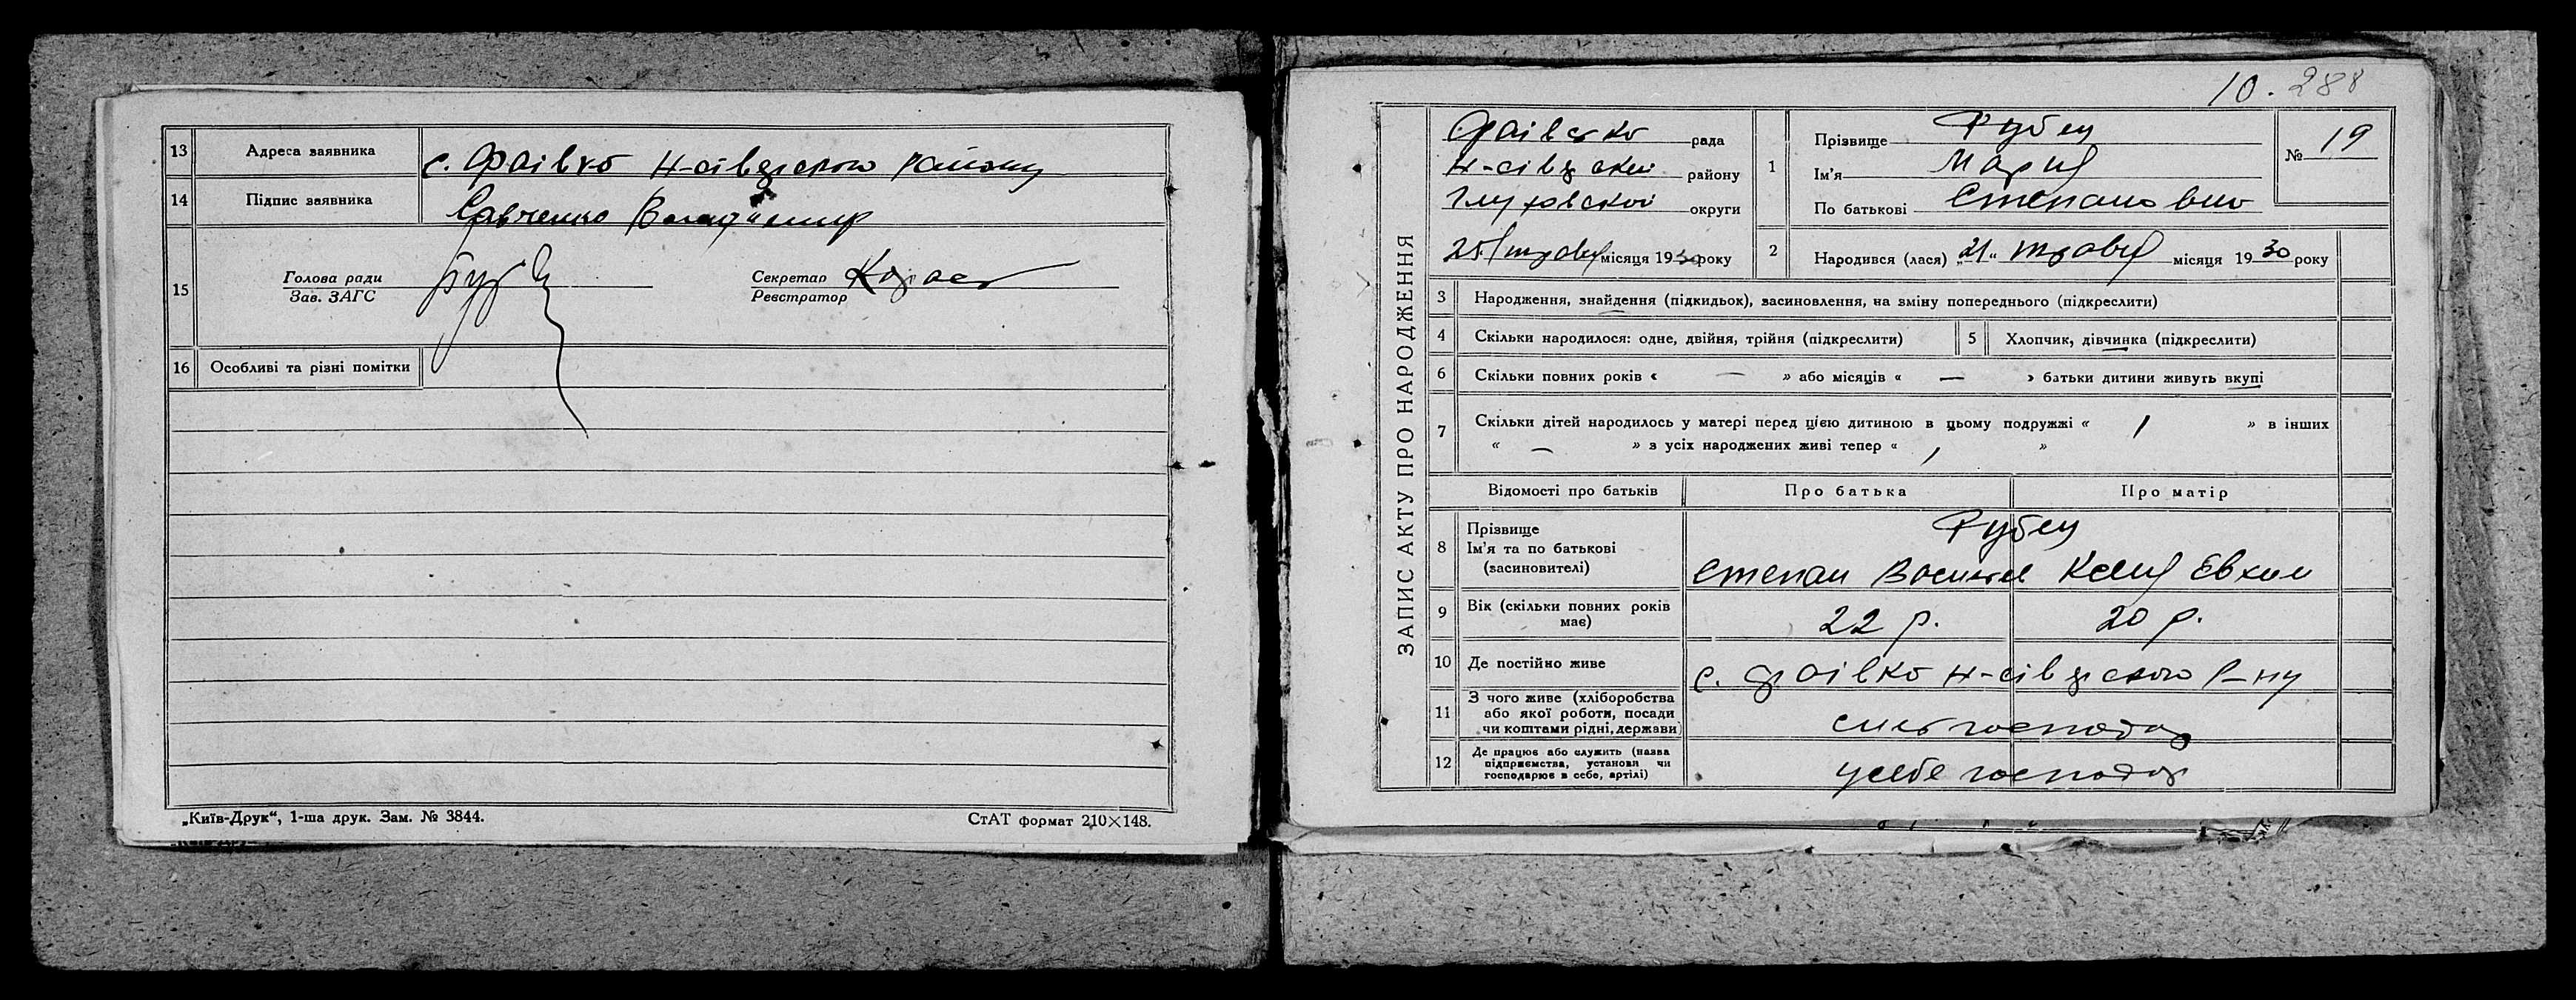 13 Адреса заявника с. Фаівка Н-сівдського району
14 Підпис заявника Савченко Володимир
15 Голова ради
Зав. ЗАГС
Секретар
Реєстратор
16 Особливі та різні помітки
„Київ-Друк“, 1-ша друк. Зам. № 3844. СтАТ формат 210×148.
10. 288
ЗАПИС АКТУ ПРО НАРОДЖЕННЯ
Фаівська рада
Н-сівдский району
Глуховской округи
25/травня місяця 1930 року
1 Прізвище Рубец
Ім'я Мария
По батькові Степановна
№ 19
2 Народився (лася) „21“ травня місяця 1930 року
3 Народження, знайдення (підкидьок), засиновлення, на зміну попереднього (підкреслити)
4 Скільки народилося: одне, двійня, трійня (підкреслити) 5 Хлопчик, дівчинка (підкреслити)
6 Скільки повних років « — » або місяців « — » батьки дитини живуть вкупі
7 Скільки дітей народилось у матері перед цією дитиною в цьому подружжі « 1 » в інших
« — » з усіх народжених живі тепер « 1 »
Відомості про батьків Про батька Про матір
8 Прізвище
Ім'я та по батькові
(засиновителі)
Рубец
Степан Василев Евхим
9 Вік (скільки повних років
має)
22 р. 20 р.
10 Де постійно живе с. Фаівка Н-сівдського р-ну
11 З чого живе (хліборобства
або якої роботи, посади
чи коштами рідні, держави)
12 Де працює або служить (назва
підприємства, установи чи
господарює в себе, артілі)
усебе господар